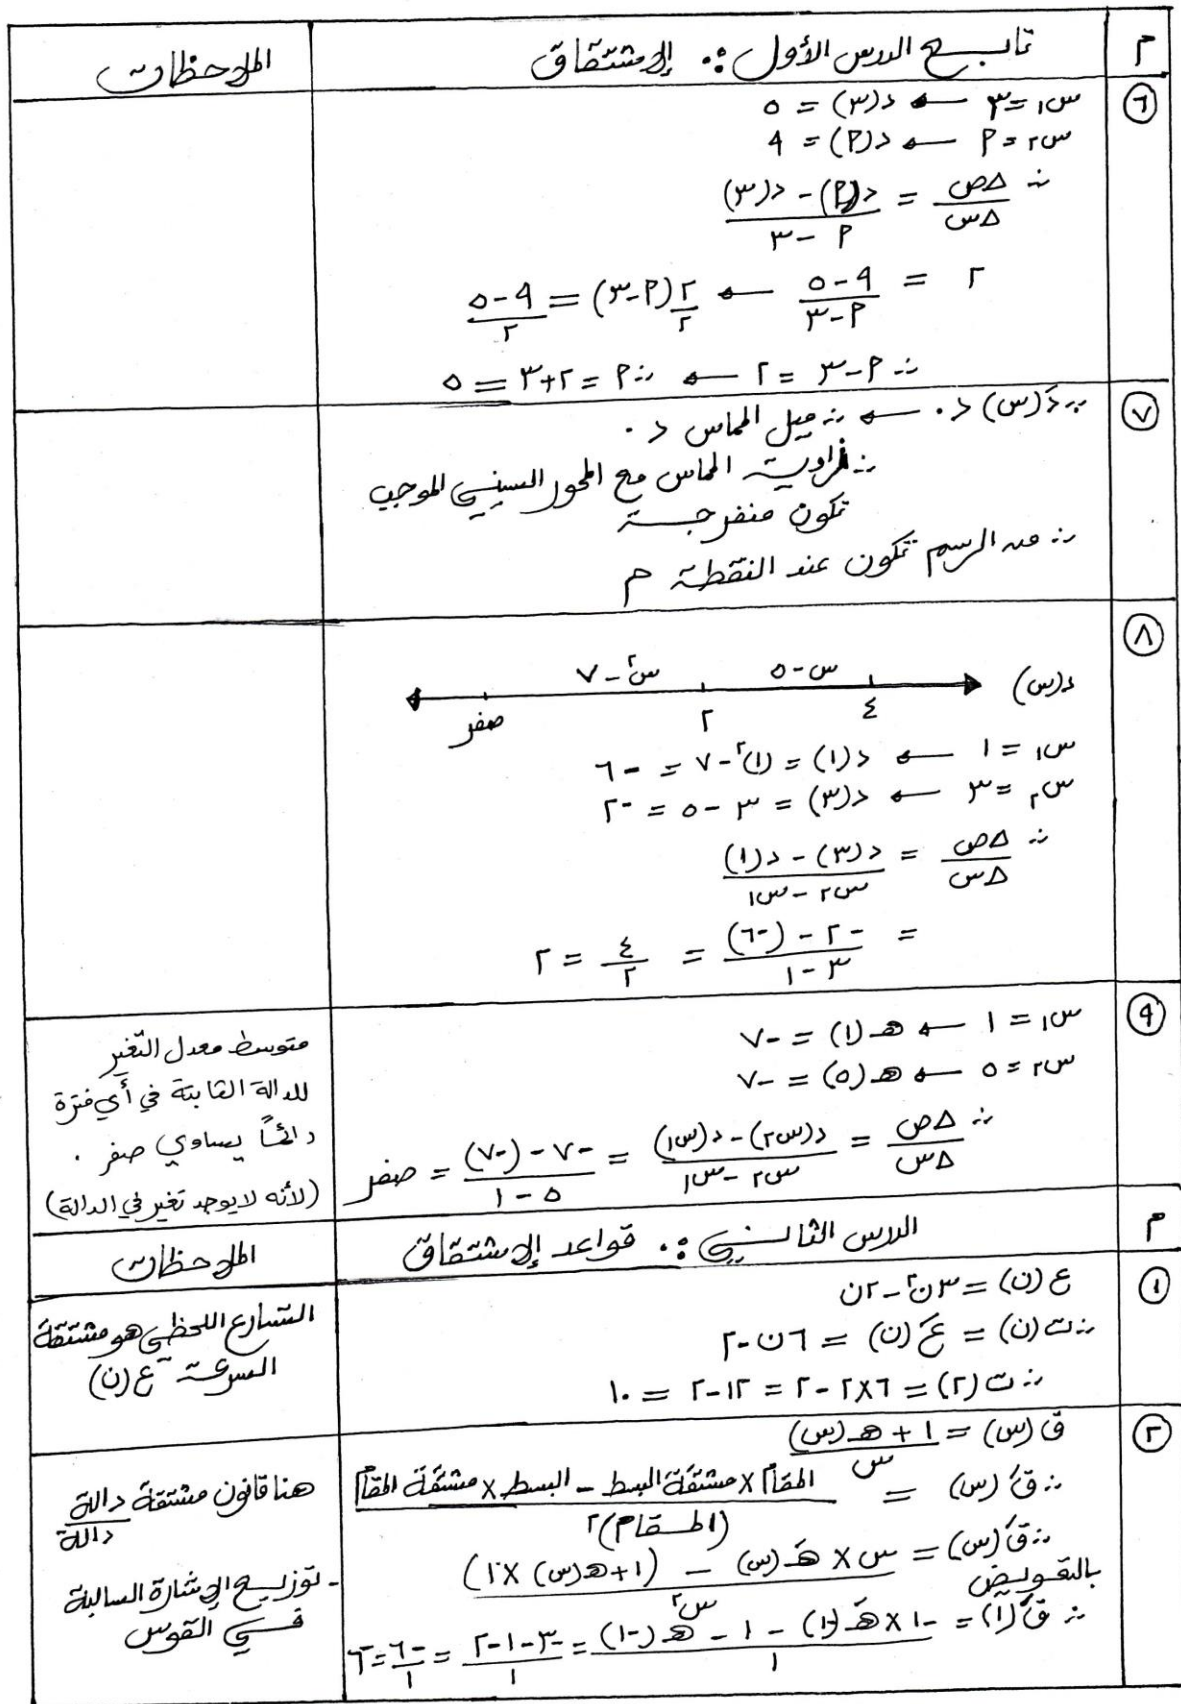 م تابع الدرس الأول :. الاشتقاق الملاحظات
٦ س١ = ٣ ← د(٣) = ٥
س٢ = م ← د(م) = ٩
∴ Δص/Δس = (د(م) - د(٣))/(م - ٣)
٢ = (٩-٥)/(م-٣) ← ٢/٢ (م-٣) = (٩-٥)/٢
∴ م-٣ = ٢ ← ∴ م = ٢+٣ = ٥
٧ ∵ دَ(س) < ٠ ← ∴ ميل المماس < ٠
∴ زاوية المماس مع المحور السيني الموجب
تكون منفرجة
∴ من الرسم تكون عند النقطة م
٨
س٢ - ٧ س - ٥
د(س)
صفر ٢ ٤
س١ = ١ ← د(١) = (١)٢ - ٧ = -٦
س٢ = ٣ ← د(٣) = ٣ - ٥ = -٢
∴ Δص/Δس = (د(٣) - د(١))/(س٢ - س١)
= (-٢ - (-٦))/(٣ - ١) = ٤/٢ = ٢
٩ س١ = ١ ← هـ(١) = -٧
س٢ = ٥ ← هـ(٥) = -٧
∴ Δص/Δس = (د(س٢) - د(س١))/(س٢ - س١) = (-٧ - (-٧))/(٥ - ١) = صفر
متوسط معدل التغير
للدالة الثابتة في أي فترة
دائماً يساوي صفر .
(لأنه لا يوجد تغير في الدالة)
م الدرس الثاني :. قواعد الاشتقاق الملاحظات
١ ع(ن) = ٣ن٢ - ٢ن
∴ ت(ن) = عَ(ن) = ٦ن - ٢
∴ ت(٢) = ٦×٢ - ٢ = ١٢ - ٢ = ١٠
التسارع اللحظي هو مشتقة
السرعة ع(ن)
٢ ق(س) = (١ + هـ(س))/س
∴ قَ(س) = (المقام × مشتقة البسط - البسط × مشتقة المقام)/(المقام)٢
∴ قَ(س) = (س × هـَ(س) - (١+هـ(س)) × ١)/س٢
بالتعويض
∴ قَ(-١) = (-١ × هـَ(-١) - ١ - هـ(-١))/١ = (-٣-١-٢)/١ = -٦/١ = -٦
هنا قانون مشتقة دالة/دالة
- توزيع الاشارة السالبة
في القوس